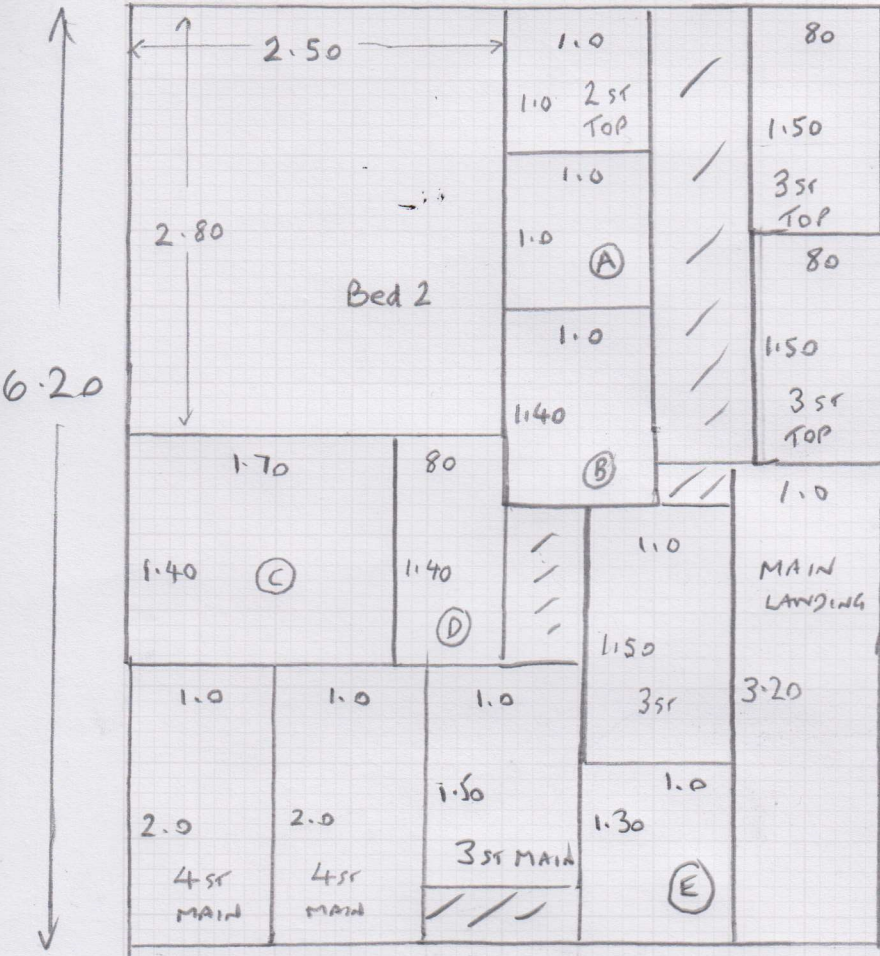 2.50
2.80
Bed 2
6.20
1.0
1.0 2 ST
TOP
1.0
1.0
A
1.0
1.40
B
80
1.50
3 ST
TOP
80
1.50
3 ST
TOP
1.70
1.40
C
80
1.40
D
1.0
1.50
3ST
1.0
MAIN
LANDING
3.20
1.0
2.0
4 ST
MAIN
1.0
2.0
4ST
MAIN
1.0
1.50
3 ST MAIN
1.0
1.30
E